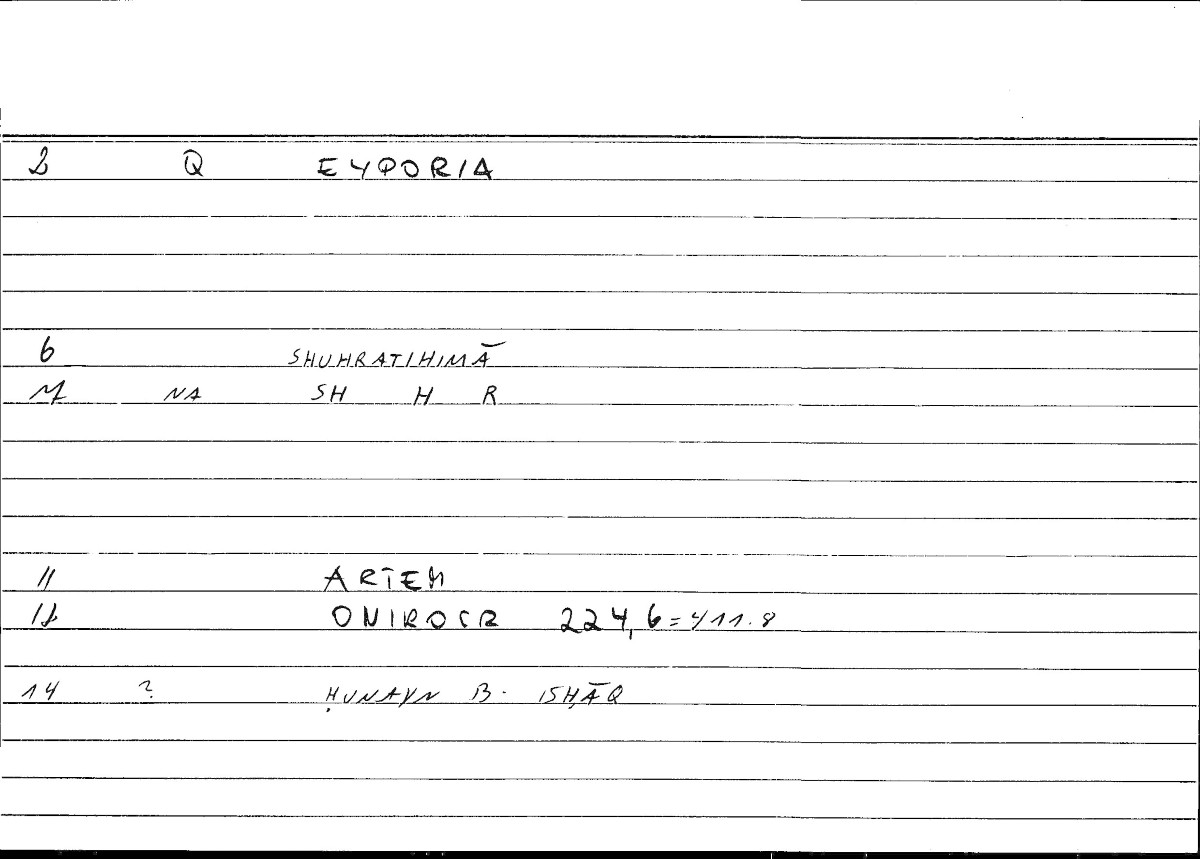 2 Q EYPORIA
6 SHUHRATIHIMĀ
NA SH H R
11 ARTEM
12 ONIROCR 224,6=411.8
14 ? ḤUNAYN B. ISḤĀQ